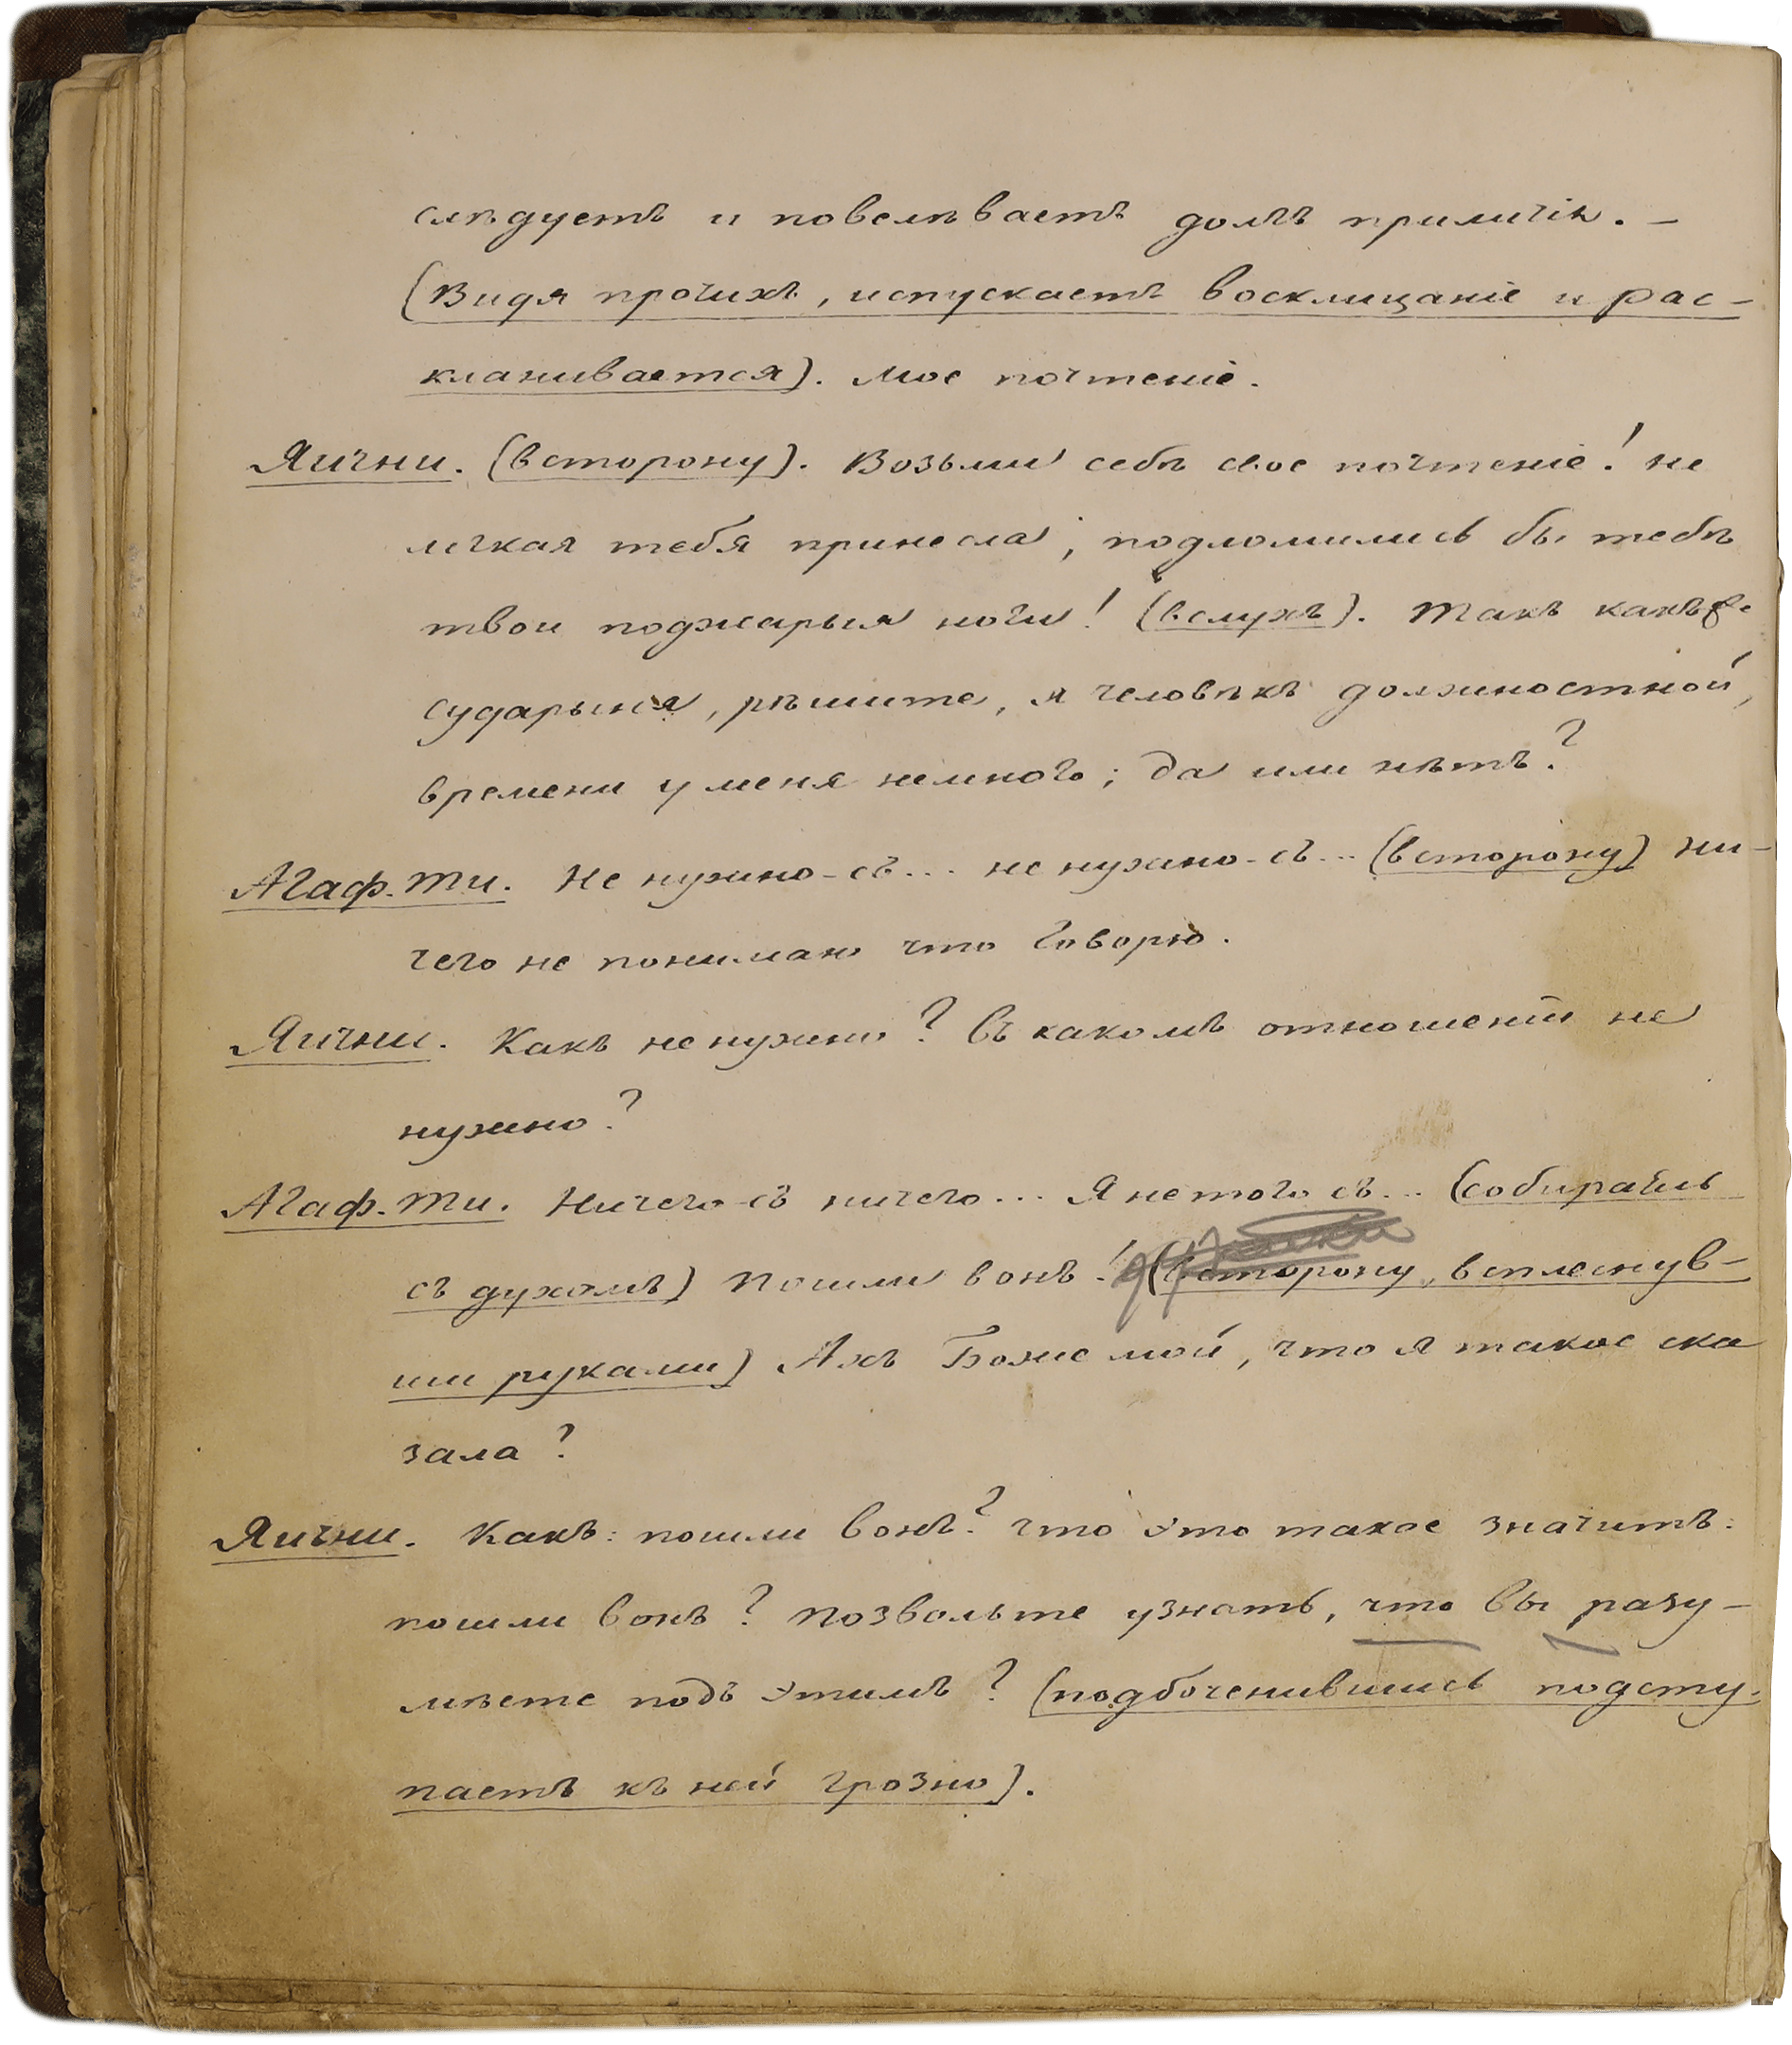 слѣдуетъ и повелѣваетъ долгъ приличія. —
(Видя прочихъ, испускаетъ восклицаніе и рас-
кланивается). Мое почтеніе.
Яични. (в сторону). Возьми себѣ свое почтеніе! не
легкая тебя принесла, подломились бы тебѣ
твои поджарыя ноги! (вслухъ). Такъ какъ же
сударыня, рѣшите, я человѣкъ должностной,
времени у меня немного; да или нѣтъ?
Агаф. Ти. Не нужно-съ... не нужно-съ... (в сторону) ни-
чего не понимаю что говорю.
Яични. Какъ не нужно? Въ какомъ отношеніи не
нужно?
Агаф. Ти. Ничего-съ ничего... Я не того съ... (собираясь
съ духомъ) Пошли вонъ! (в сторону, всплеснув-
ши руками) Ахъ Боже мой, что я такое ска
зала?
Яични. Какъ: пошли вонъ? что это такое значитъ:
пошли вонъ? Позвольте узнать, что вы разу-
мѣете подъ этимъ? (подбоченившись подсту-
паетъ къ ней грозно).